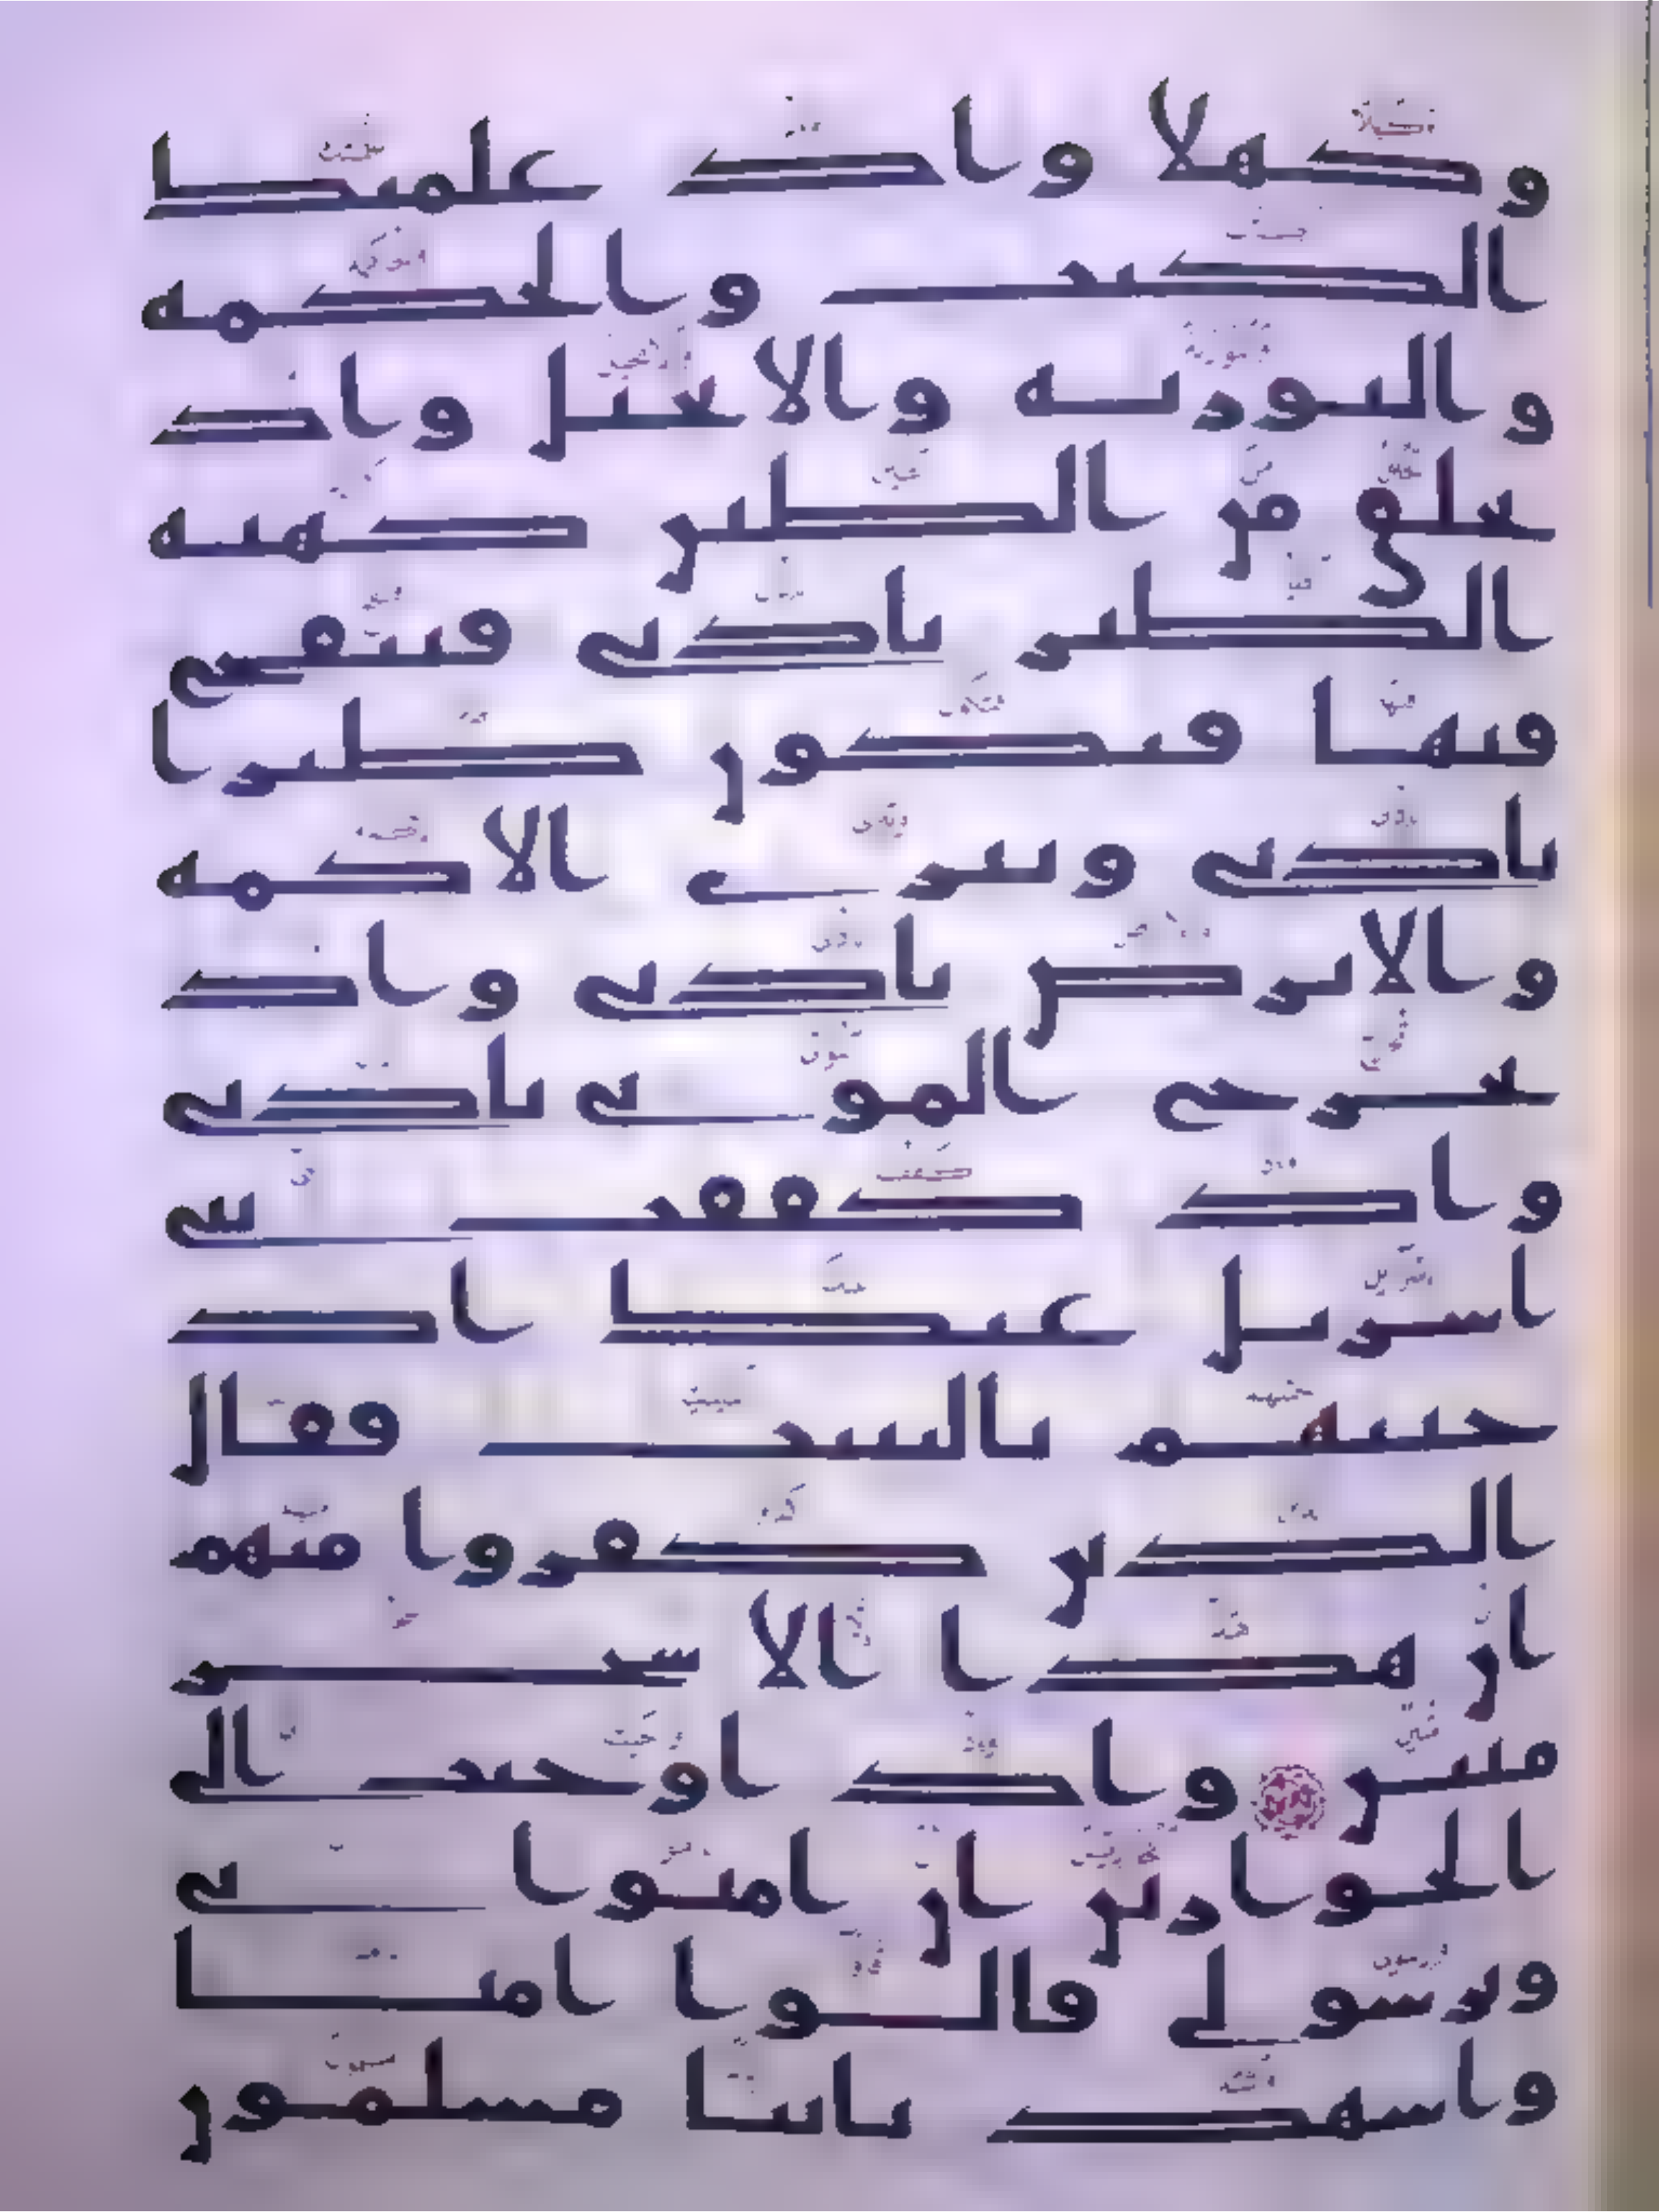 وكهلا واذ علمتك
الكتب والحكمة
والتورية والانجيل واذ
تخلق من الطين كهية
الطير باذني فتنفخ
فيها فتكون طيرا
باذني وتبري الاكمه
والابرص باذني واذ
تخرج الموتى باذني
واذ كففت بني
اسريل عنك اذ
جيتهم بالبينت فقال
الذين كفروا منهم
ان هذا الا سحر
مبين واذ اوحيت الى
الحوارين ان امنوا بي
وبرسولي قالوا امنا
واشهد باننا مسلمون